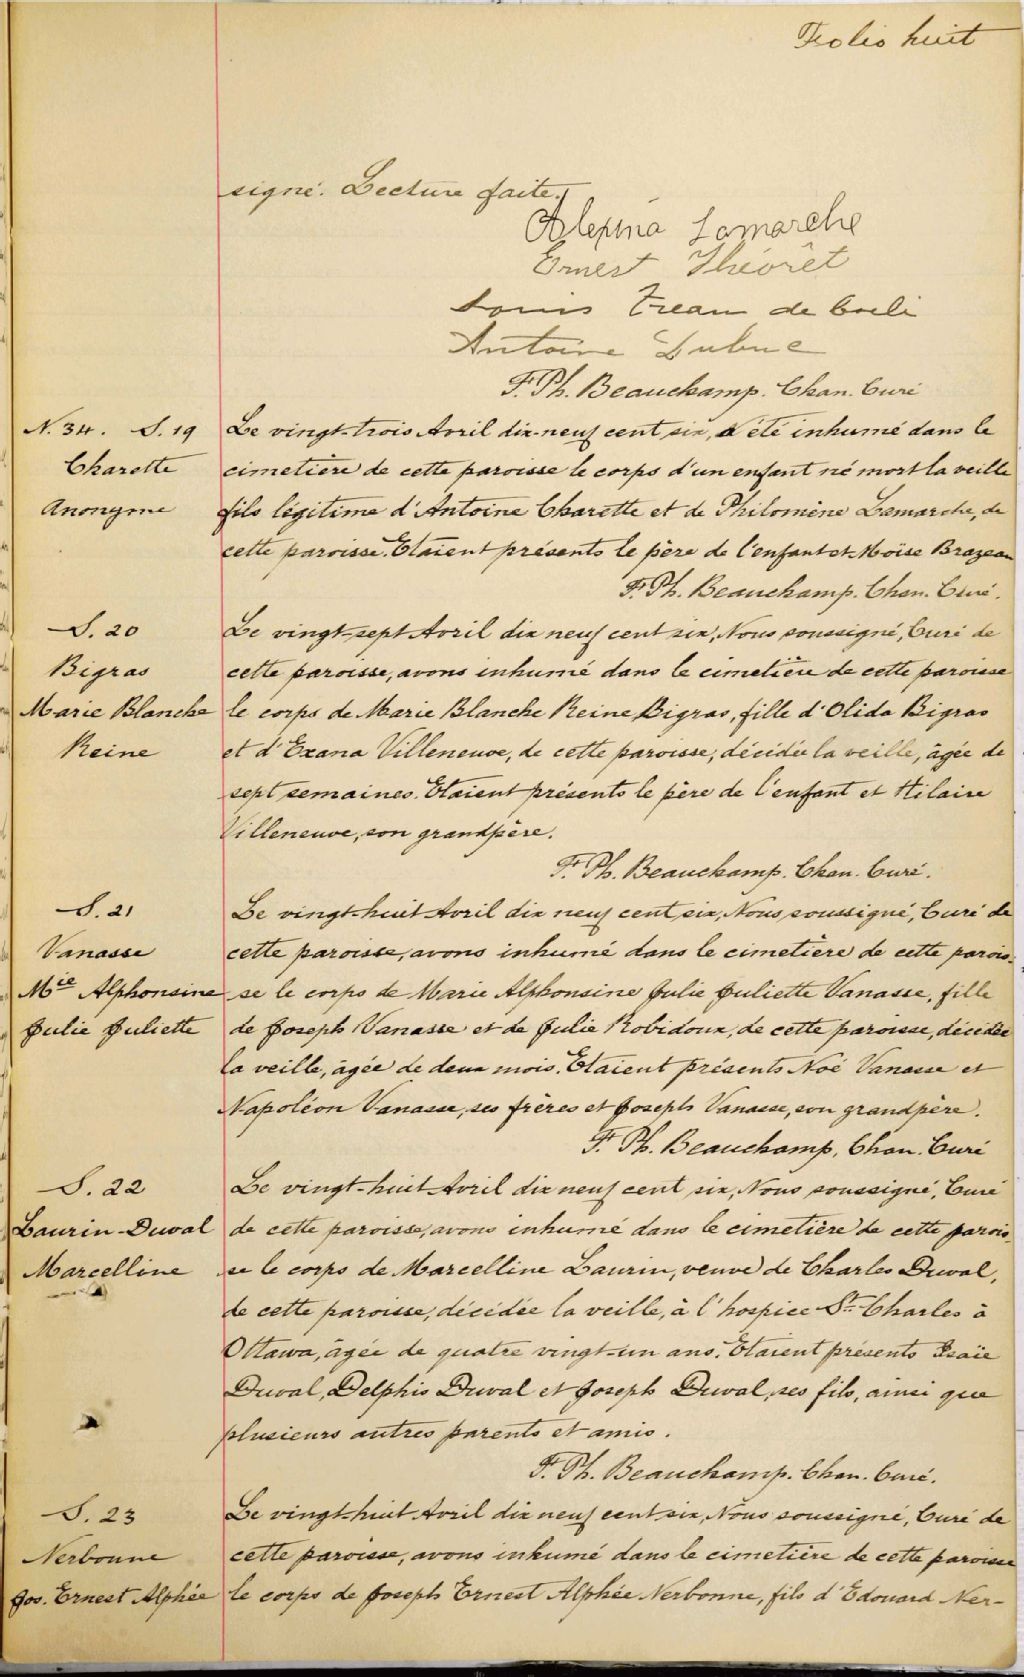 Folio huit
signé. Lecture faite.
Alexina Lamarche
Ernest Théorêt
Louis Treau de Coeli
Antoine Dubuc
F. Ph. Beauchamp. Chan. Curé
N. 34. S. 19
Charette
Anonyme
Le vingt-trois Avril dix-neuf cent six, a été inhumé dans le
cimetière de cette paroisse le corps d'un enfant né mort la veille
fils légitime d'Antoine Charette et de Philomène Lamarche, de
cette paroisse. Etaient présents le père de l'enfant et Moïse Brazeau
F. Ph. Beauchamp. Chan. Curé.
S. 20
Bigras
Marie Blanche
Reine
Le vingt-sept Avril dix neuf cent six, Nous soussigné, Curé de
cette paroisse, avons inhumé dans le cimetière de cette paroisse
le corps de Marie Blanche Reine Bigras, fille d'Olida Bigras
et d'Exana Villeneuve, de cette paroisse, décédée la veille, âgée de
sept semaines. Etaient présents le père de l'enfant et Hilaire
Villeneuve, son grandpère.
F. Ph. Beauchamp. Chan. Curé.
S. 21
Vanasse
Mie Alphonsine
Julie Juliette
Le vingt-huit Avril dix neuf cent six, Nous soussigné, Curé de
cette paroisse, avons inhumé dans le cimetière de cette parois-
se le corps de Marie Alphonsine Julie Juliette Vanasse, fille
de Joseph Vanasse et de Julie Robidoux, de cette paroisse, décédée
la veille, âgée de deux mois. Etaient présents Noé Vanasse et
Napoléon Vanasse, ses frères et Joseph Vanasse, son grandpère.
F. Ph. Beauchamp, Chan. Curé
S. 22
Laurin-Duval
Marcelline
Le vingt-huit Avril dix neuf cent six, Nous soussigné, Curé
de cette paroisse, avons inhumé dans le cimetière de cette parois-
se le corps de Marcelline Laurin, veuve de Charles Duval,
de cette paroisse, décédée la veille, à l'hospice St-Charles à
Ottawa, âgée de quatre vingt-un ans. Etaient présents Isaïe
Duval, Delphis Duval et Joseph Duval, ses fils, ainsi que
plusieurs autres parents et amis.
F. Ph. Beauchamp. Chan. Curé.
S. 23
Nerbonne
Jos. Ernest Alphée
Le vingt-huit Avril dix neuf cent six, Nous soussigné, Curé de
cette paroisse, avons inhumé dans le cimetière de cette paroisse
le corps de Joseph Ernest Alphée Nerbonne, fils d'Edouard Ner-